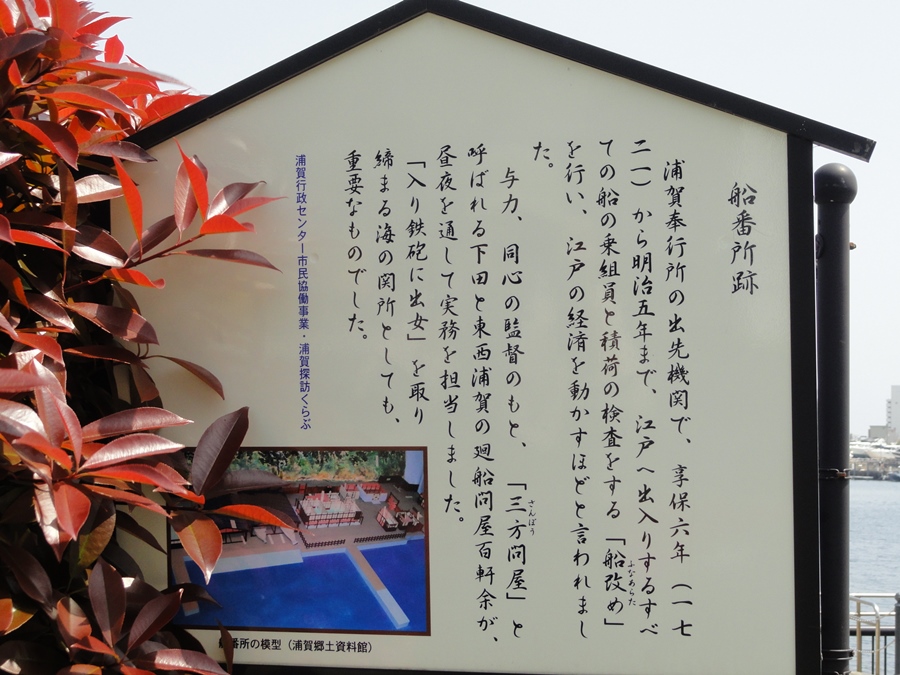 船番所跡
浦賀奉行所の出先機関で、享保六年（一七
二一）から明治五年まで、江戸へ出入りするすべ
ての船の乗組員と積荷の検査をする「船改め」
ふなあらた
を行い、江戸の経済を動かすほどと言われまし
た。
与力、同心の監督のもと、「三方問屋」と
さんぼう
呼ばれる下田と東西浦賀の廻船問屋百軒余が、
昼夜を通して実務を担当しました。
「入り鉄砲に出女」を取り
締まる海の関所としても、
重要なものでした。
浦賀行政センター市民協働事業・浦賀探訪くらぶ
番所の模型（浦賀郷土資料館）